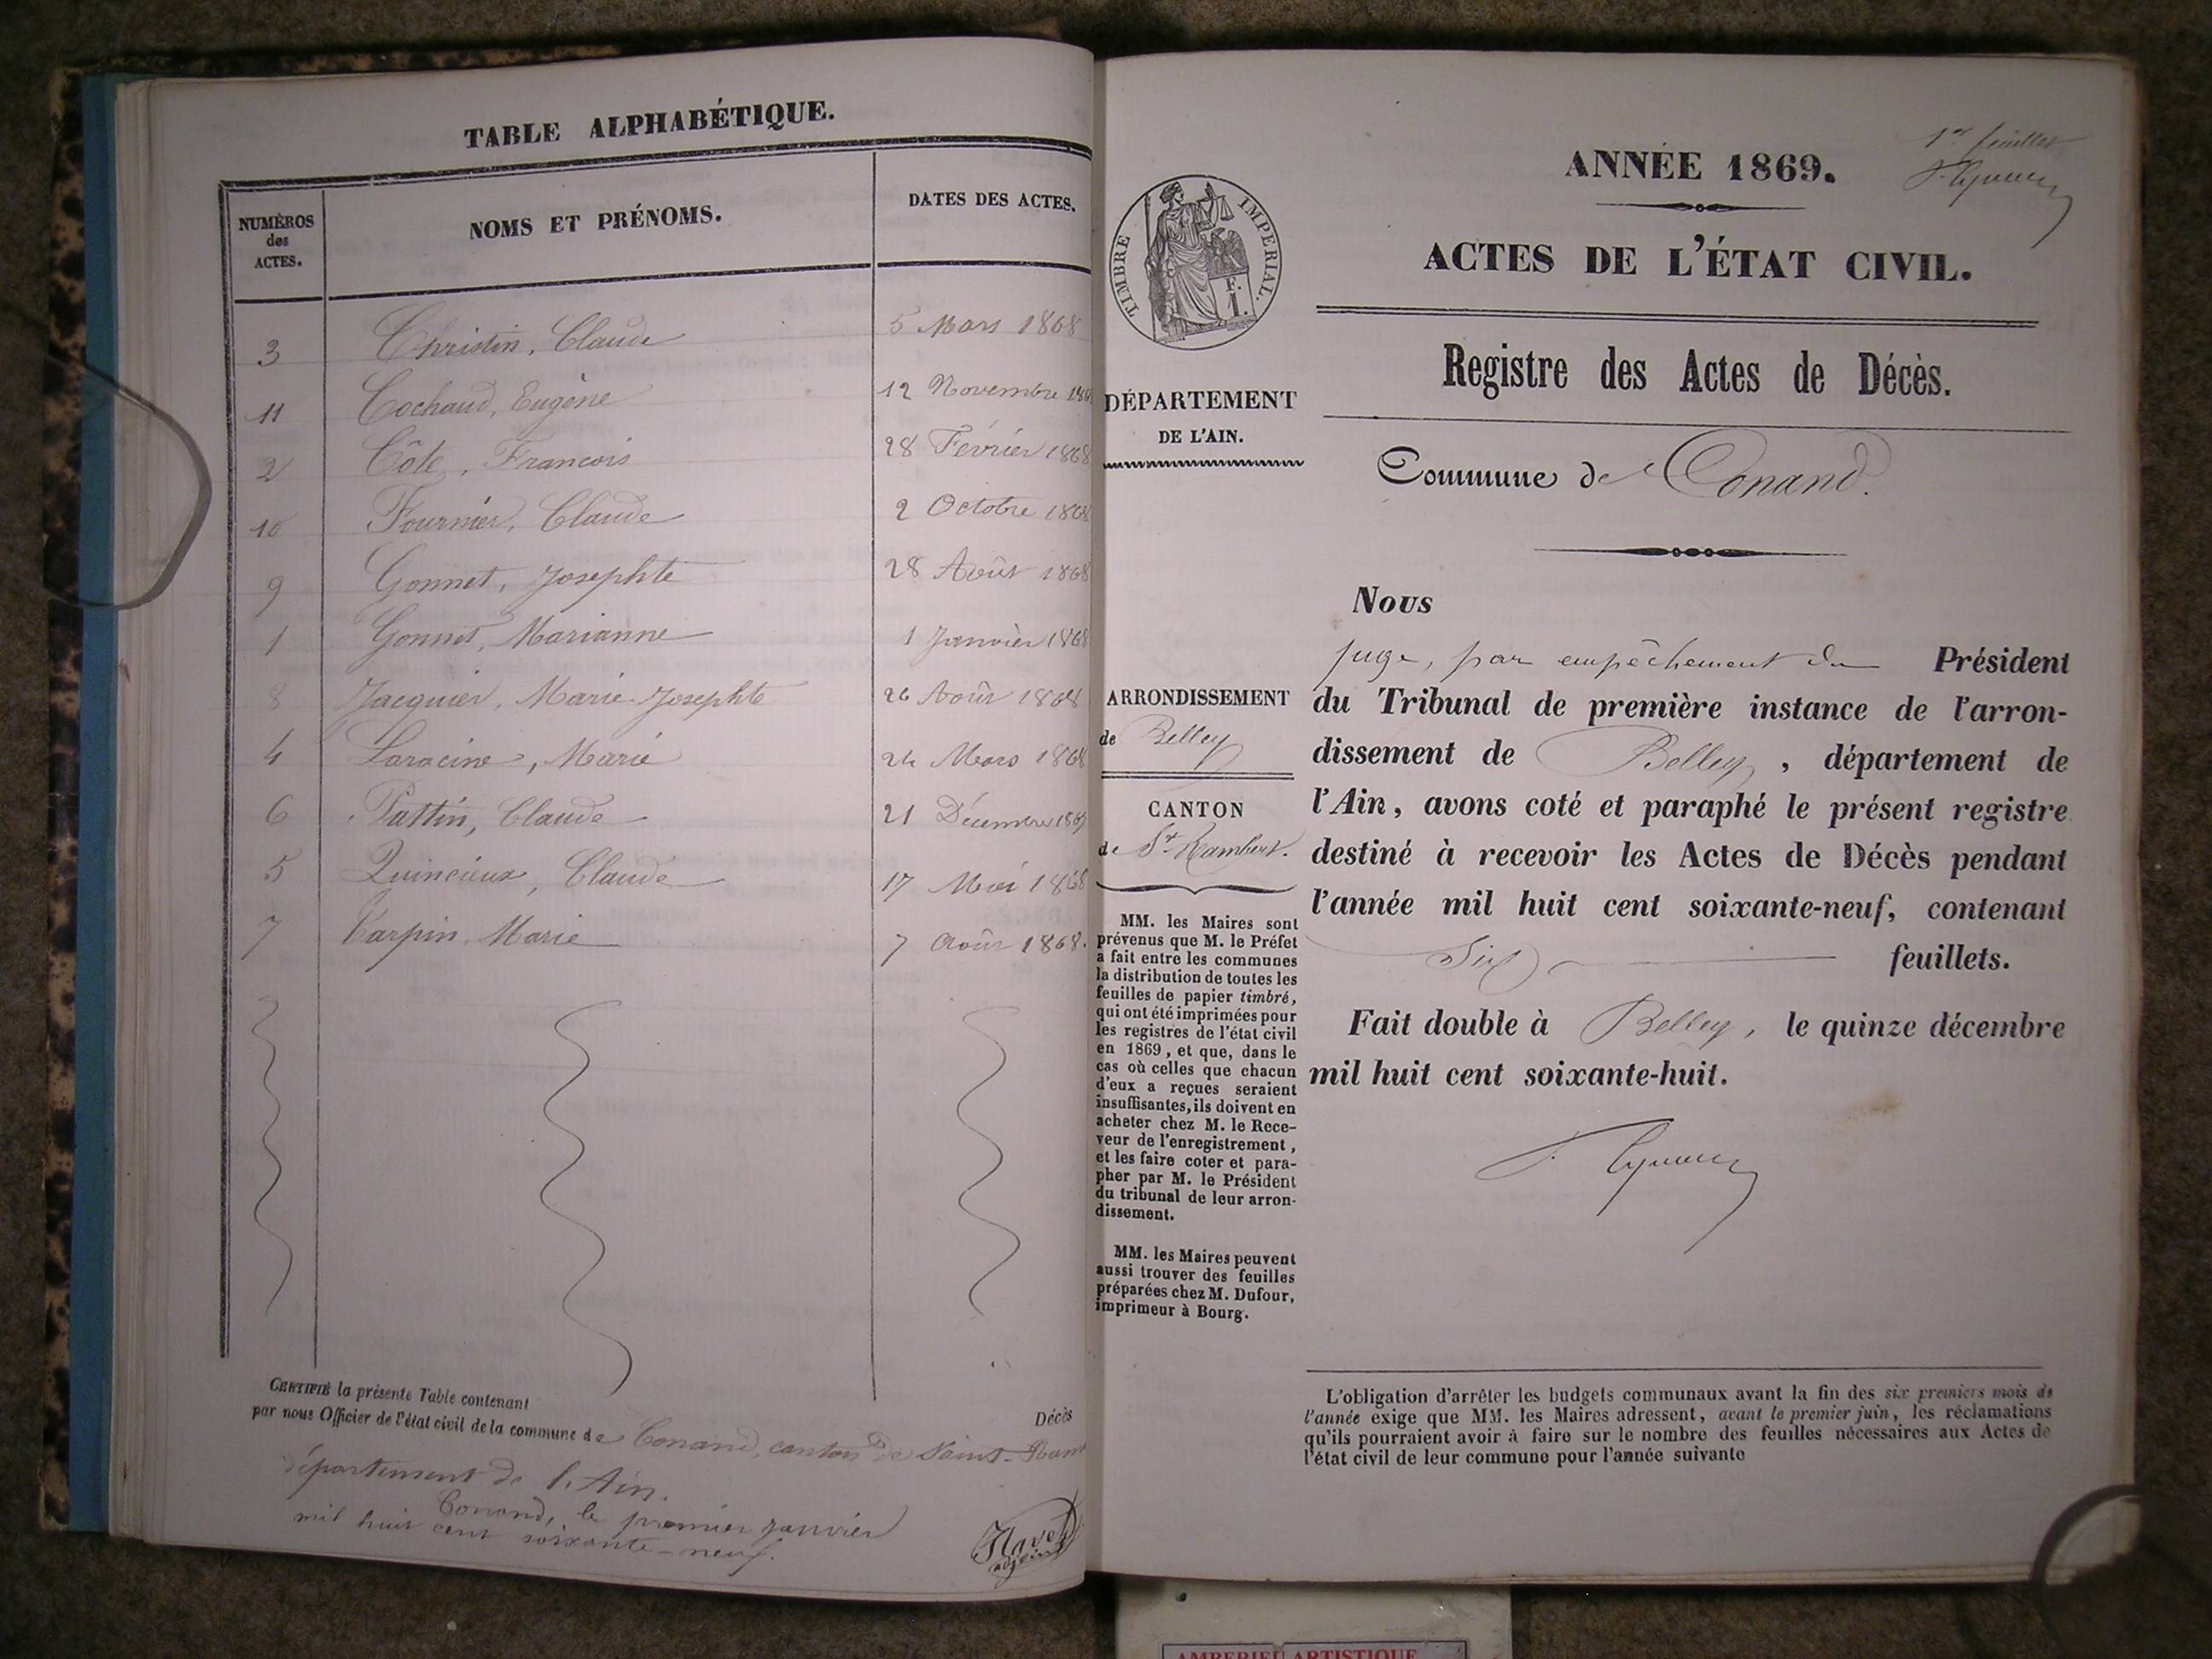 TABLE ALPHABÉTIQUE.
NUMÉROS
des
ACTES.
NOMS ET PRÉNOMS.
DATES DES ACTES.
3 Christin, Claude 5 Mars 1868
11 Cochaud, Eugène 12 Novembre 1868
2 Côte, François 28 Février 1868
10 Fournier, Claude 2 Octobre 1868
9 Gonnet, Josephte 28 Août 1868
1 Gonnet, Marianne 1 Janvier 1868
8 Jacquier, Marie Josephte 26 Août 1868
4 Laracine, Marie 24 Mars 1868
6 Pattin, Claude 21 Décembre
5 Quincieux, Claude 17 Mai 1868
7 Carpin, Marie 7 Août 1868.
CERTIFIÉ la présente Table contenant Décès
par nous Officier de l'état civil de la commune de Conand, canton de Saint-Ram
département de l'Ain.
Conand, le premier janvier
mil huit cent soixante-neuf.
Navet
adjoint
1er feuillet
ANNÉE 1869.
ACTES DE L'ÉTAT CIVIL.
TIMBRE IMPERIAL.
F.
1.
Registre des Actes de Décès.
DÉPARTEMENT
DE L'AIN.
Commune de Conand.
ARRONDISSEMENT
de Belley
CANTON
de St Rambert.
MM. les Maires sont
prévenus que M. le Préfet
a fait entre les communes
la distribution de toutes les
feuilles de papier timbré,
qui ont été imprimées pour
les registres de l'état civil
en 1869, et que, dans le
cas où celles que chacun
d'eux a reçues seraient
insuffisantes, ils doivent en
acheter chez M. le Rece-
veur de l'enregistrement,
et les faire coter et para-
pher par M. le Président
du tribunal de leur arron-
dissement.
MM. les Maires peuvent
aussi trouver des feuilles
préparées chez M. Dufour,
imprimeur à Bourg.
Nous
juge, par empêchement du Président
du Tribunal de première instance de l'arron-
dissement de Belley, département de
l'Ain, avons coté et paraphé le présent registre
destiné à recevoir les Actes de Décès pendant
l'année mil huit cent soixante-neuf, contenant
Six feuillets.
Fait double à Belley, le quinze décembre
mil huit cent soixante-huit.
L'obligation d'arrêter les budgets communaux avant la fin des six premiers mois de
l'année exige que MM. les Maires adressent, avant le premier juin, les réclamations
qu'ils pourraient avoir à faire sur le nombre des feuilles nécessaires aux Actes de
l'état civil de leur commune pour l'année suivante
AMBERIEU ARTISTIQUE